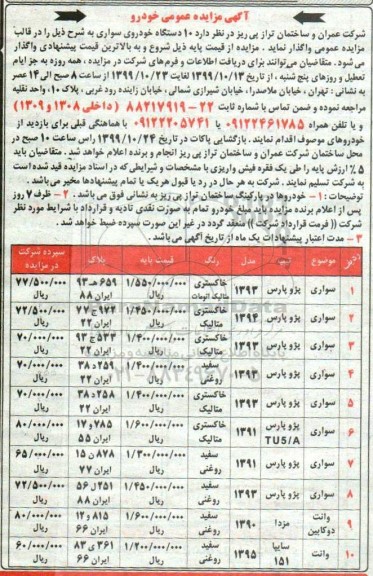 آگهی مزایده عمومی خودرو
شرکت عمران و ساختمان تراز پی ریز در نظر دارد ۱۰ دستگاه خودروی سواری به شرح ذیل را در قالب
مزایده عمومی واگذار نماید. مزایده از قیمت پایه ذیل شروع و به بالاترین قیمت پیشنهادی واگذار
می شود. متقاضیان می‌توانند برای دریافت اطلاعات و فرم‌های شرکت در مزایده، همه روزه به جز ایام
تعطیل و روزهای پنج شنبه، از تاریخ ۱۳۹۹/۱۰/۱۳ لغایت ۱۳۹۹/۱۰/۲۳ از ساعت ۸ صبح الی ۱۴ عصر
به نشانی: تهران، خیابان ملاصدرا، خیابان شیرازی شمالی، خیابان زاینده رود غربی، پلاک ۱۰، واحد نقلیه
مراجعه نموده و ضمن تماس با شماره ثابت ۲۲-۸۸۲۱۷۹۱۹ (داخلی ۱۳۰۸ و ۱۳۰۹)
و یا تلفن همراه ۰۹۱۲۲۴۶۱۷۸۵ یا ۰۹۱۲۲۲۰۵۷۴۱ با هماهنگی قبلی برای بازدید از
خودروهای موصوف اقدام نمایند. بازگشایی پاکات در تاریخ ۱۳۹۹/۱۰/۲۴ راس ساعت ۱۰ صبح در
محل ساختمان شرکت عمران و ساختمان تراز پی ریز انجام و برنده اعلام خواهد شد. متقاضیان باید
۵٪ ارزش پایه را طی یک فقره فیش واریزی با مشخصات و شرایطی که در اسناد مزایده قید شده است
به شرکت تسلیم نمایند. شرکت به هر حال در رد یا قبول هر یک یا تمام پیشنهادها مخیر می‌باشد.
توضیحات: ۱- خودروها در پارکینگ ساختمان تراز پی ریز به نشانی فوق می باشد. ۲- ظرف ۷ روز
پس از اعلام برنده مزایده باید مبلغ خودرو تمام به صورت نقدی تادیه و قرارداد با شرایط مورد نظر
شرکت ((فرمت قرارداد شرکت)) منعقد گردد در غیر این صورت سپرده ضبط خواهد شد.
۳- مدت اعتبار پیشنهادات یک ماه از تاریخ آگهی می‌باشد.
ردیف موضوع مدل رنگ قیمت پایه پلاک سپرده شرکت در مزایده
۱ سواری پژو پارس ۱۳۹۳ خاکستری متالیک اتومات ۱/۵۵۰/۰۰۰/۰۰۰ ریال ۶۵۹ هـ ۹۳ ایران ۸۸ ۷۷/۵۰۰/۰۰۰ ریال
۲ سواری پژو پارس ۱۳۹۴ خاکستری متالیک ۱/۴۵۰/۰۰۰/۰۰۰ ریال ۹۷۴ ج ۷۷ ایران ۲۲ ۷۲/۵۰۰/۰۰۰ ریال
۳ سواری پژو پارس ۱۳۹۳ خاکستری متالیک ۱/۴۰۰/۰۰۰/۰۰۰ ریال ۵۳۳ ج ۹۳ ایران ۲۲ ۷۰/۰۰۰/۰۰۰ ریال
۴ سواری پژو پارس ۱۳۹۳ سفید روغنی ۱/۴۰۰/۰۰۰/۰۰۰ ریال ۲۵۹ د ۳۸ ایران ۲۲ ۷۰/۰۰۰/۰۰۰ ریال
۵ سواری پژو پارس ۱۳۹۳ خاکستری متالیک ۱/۴۰۰/۰۰۰/۰۰۰ ریال ۲۵۸ د ۳۸ ایران ۲۲ ۷۰/۰۰۰/۰۰۰ ریال
۶ سواری پژو پارس TU5/A ۱۳۹۱ خاکستری متالیک ۱/۶۰۰/۰۰۰/۰۰۰ ریال ۷۸۵ و ۱۷ ایران ۵۵ ۸۰/۰۰۰/۰۰۰ ریال
۷ سواری پژو پارس ۱۳۹۱ سفید روغنی ۱/۳۰۰/۰۰۰/۰۰۰ ریال ۸۷۸ ن ۱۵ ایران ۷۷ ۶۵/۰۰۰/۰۰۰ ریال
۸ سواری پژو پارس ۱۳۹۳ سفید روغنی ۱/۴۵۰/۰۰۰/۰۰۰ ریال ۲۵۱ ل ۵۶ ایران ۸۸ ۷۲/۵۰۰/۰۰۰ ریال
۹ وانت دوکابین مزدا ۱۳۹۰ سفید روغنی ۱/۶۰۰/۰۰۰/۰۰۰ ریال ۸۱۵ و ۱۲ ایران ۶۶ ۸۰/۰۰۰/۰۰۰ ریال
۱۰ وانت سایپا ۱۵۱ ۱۳۹۵ سفید روغنی ۱/۲۰۰/۰۰۰/۰۰۰ ریال ۳۶۱ ی ۸۳ ایران ۶۶ ۶۰/۰۰۰/۰۰۰ ریال